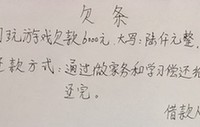 欠条
玩游戏欠款6000元,大写:陆仟元整,
款方式:通过做家务和学习偿还
还完。
借款人